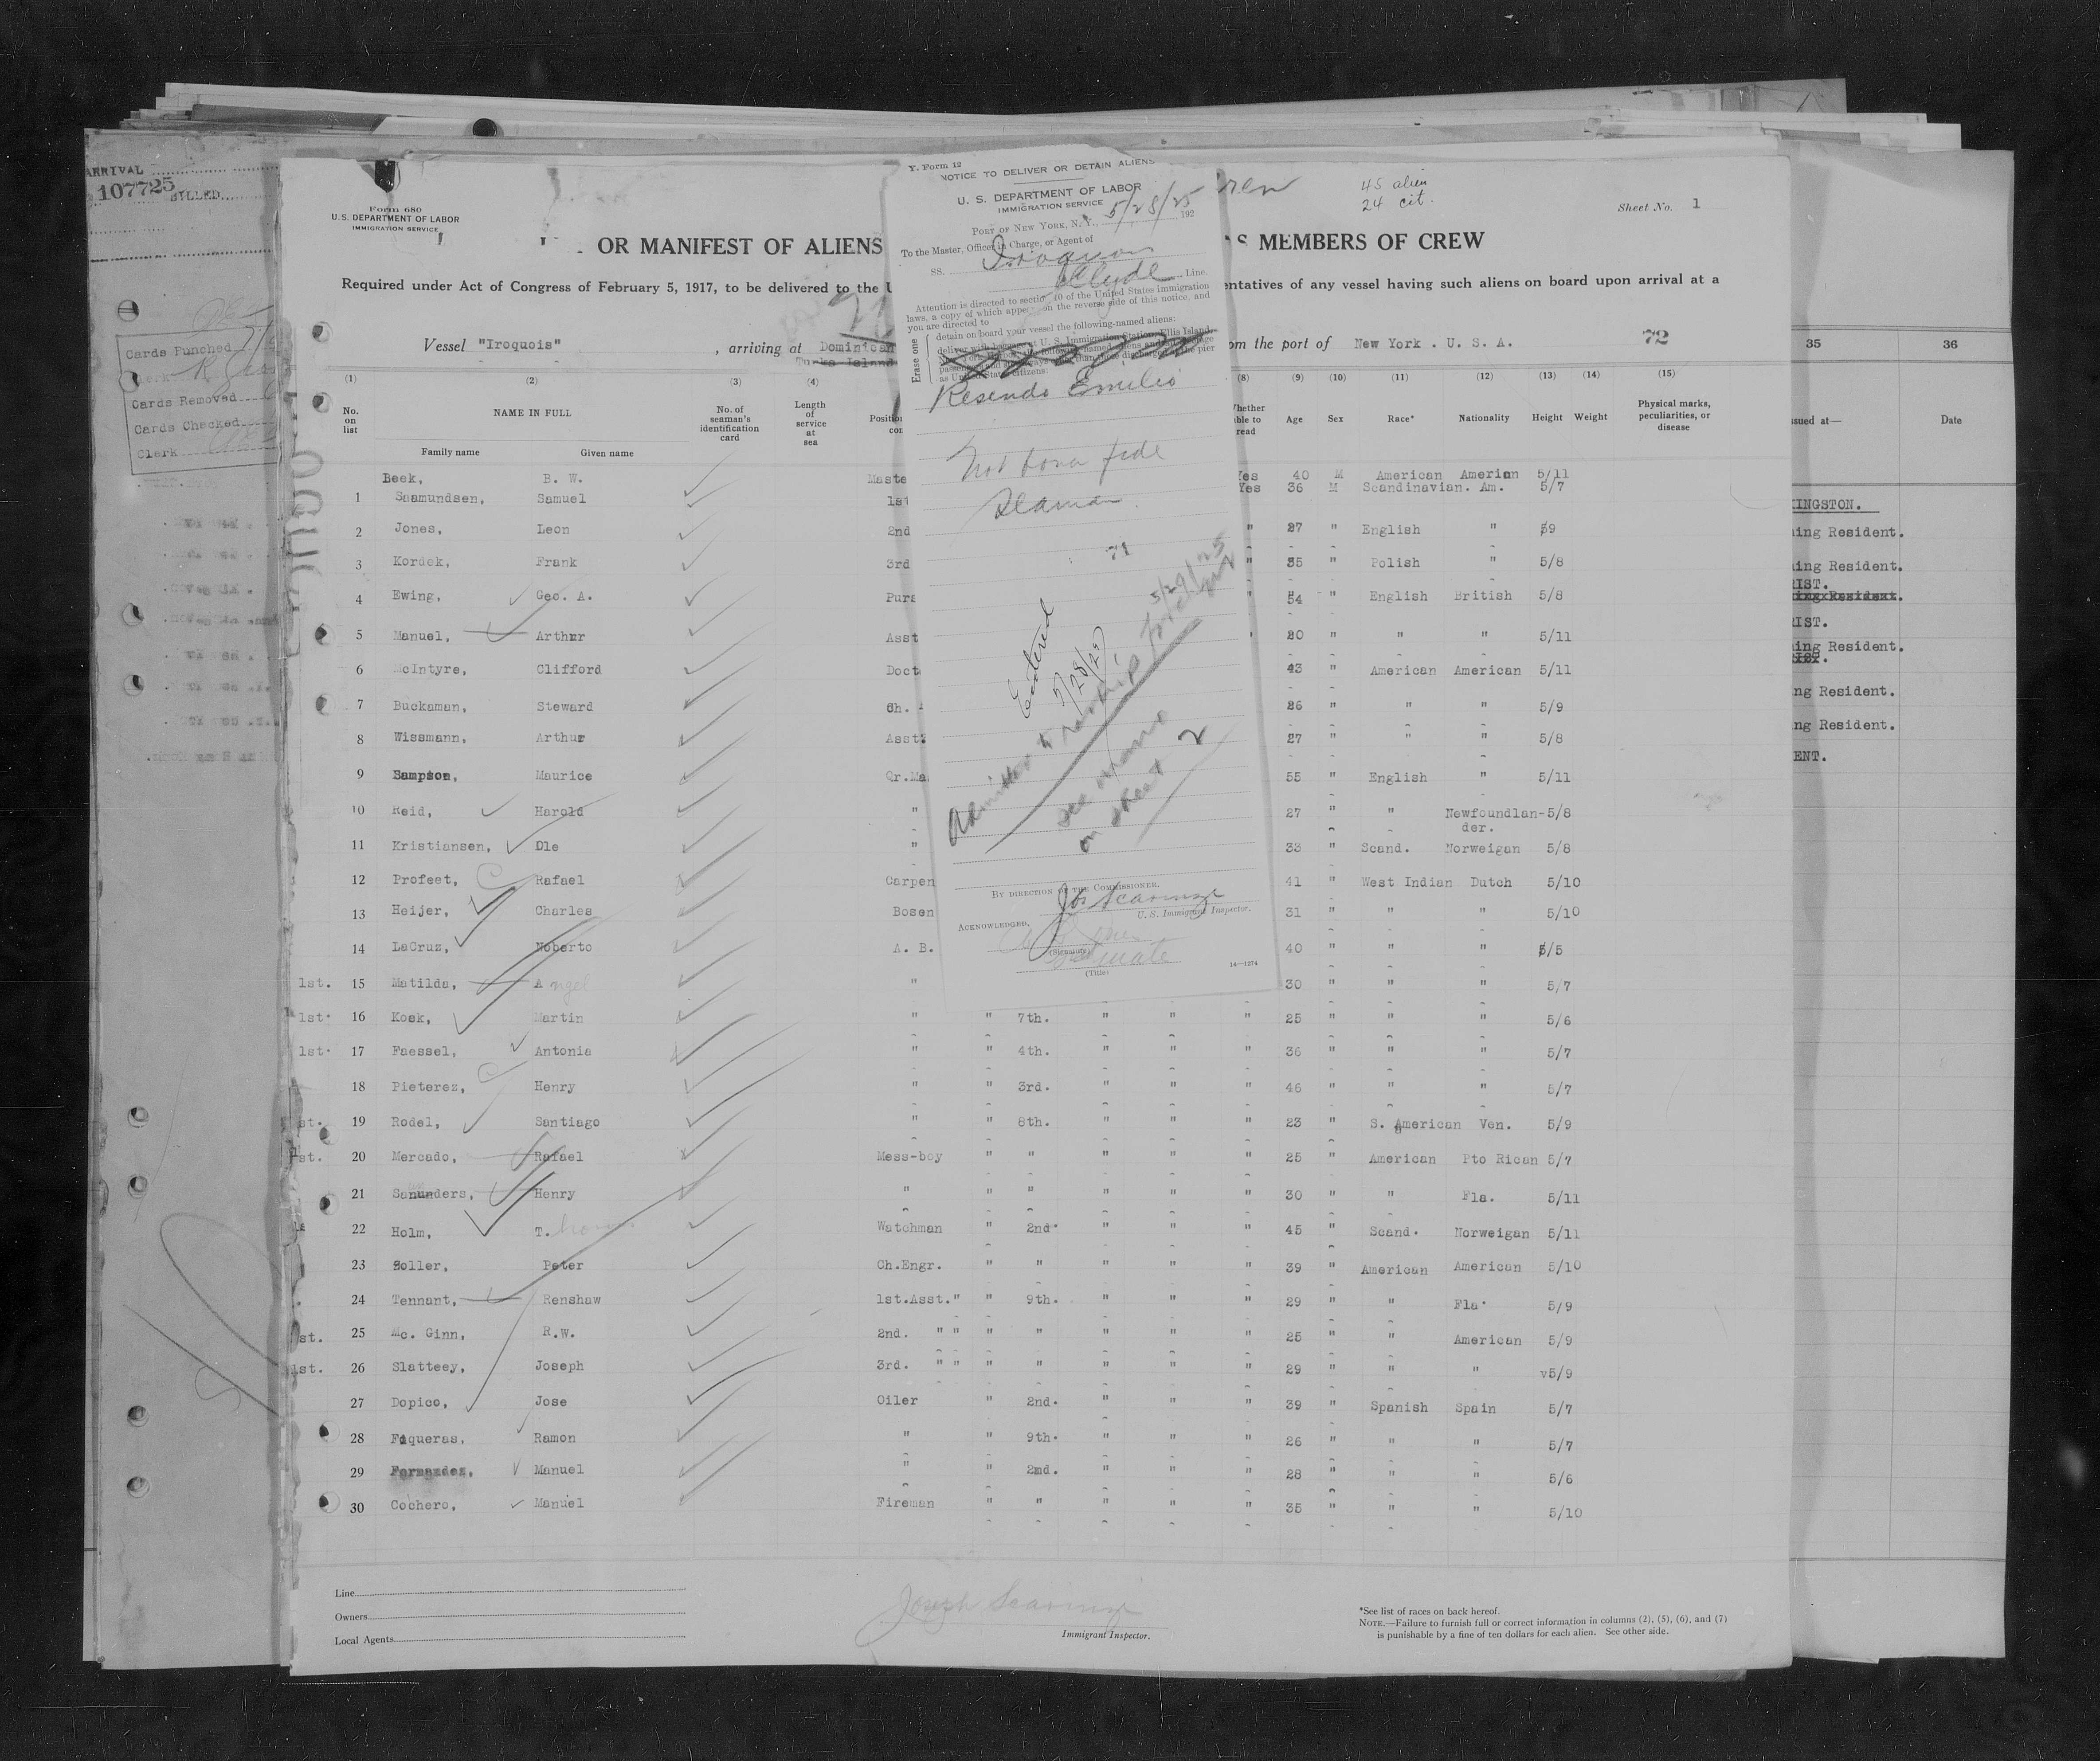 ARRIVAL
107725
BILLED
Cards Punched
Cards Removed
Cards Checked
Clerk
Form 680
U. S. DEPARTMENT OF LABOR
IMMIGRATION SERVICE
OR MANIFEST OF ALIENS
MEMBERS OF CREW
45 alien
24 cit.
Sheet No. 1
Required under Act of Congress of February 5, 1917, to be delivered to the U
entatives of any vessel having such aliens on board upon arrival at a
Vessel "Iroquois" , arriving at Dominican
Turks Island
om the port of New York . U. S. A. 72
Y. Form 12
NOTICE TO DELIVER OR DETAIN ALIENS
U. S. DEPARTMENT OF LABOR
IMMIGRATION SERVICE
PORT OF NEW YORK, N. Y., 5/28/25 192
To the Master, Officer in Charge, or Agent of
SS. Iroquois
Clyde Line.
Attention is directed to section 10 of the United States immigration
laws, a copy of which appears on the reverse side of this notice, and
you are directed to
Erase one
detain on board your vessel the following-named aliens:
Resendo Emilio
Not bona fide
Seaman
71
Entered
5/28/25
5/29/25
Admitted
see name
on sheet 2
BY DIRECTION OF THE COMMISSIONER.
Jos Scarinze
U. S. Immigrant Inspector.
ACKNOWLEDGED,
(Signature)
mate
(Title)
14—1274
(1) (2) (3) (4) (8) (9) (10) (11) (12) (13) (14) (15)
No. on list
NAME IN FULL
Family name Given name
No. of seaman's identification card
Length of service at sea
Age Sex Race* Nationality Height Weight
Physical marks, peculiarities, or disease
Beek, B. W. Maste Yes 40 M American Amerian 5/11
1 Saamundsen, Samuel 1st Yes 36 M Scandinavian. Am. 5/7
2 Jones, Leon 2nd " 27 " English " 59
3 Kordek, Frank 3rd " 35 " Polish " 5/8
4 Ewing, Geo. A. Purs " 54 " English British 5/8
5 Manuel, Arthur Asst 20 " " " 5/11
6 McIntyre, Clifford Doct 43 " American American 5/11
7 Buckaman, Steward Ch. 26 " " " 5/9
8 Wissmann, Arthur Asst 27 " " " 5/8
9 Sampson, Maurice Qr.Ma 55 " English " 5/11
10 Reid, Harold " 27 " " Newfoundlan-5/8
der.
11 Kristiansen, Ole " 33 " Scand. Norweigan 5/8
12 Profeet, Rafael Carpen 41 " West Indian Dutch 5/10
13 Heijer, Charles Bosen 31 " " " 5/10
14 LaCruz, Noberto A. B. 40 " " " 5/5
1st. 15 Matilda, Angel " 30 " " " 5/7
1st. 16 Kock, Martin " " 7th. " " " 25 " " " 5/6
1st. 17 Faessel, Antonia " " 4th. " " " 36 " " " 5/7
18 Pieterez, Henry " " 3rd. " " " 46 " " " 5/7
st. 19 Rodel, Santiago " " 8th. " " " 23 " S. American Ven. 5/9
st. 20 Mercado, Rafael Mess-boy " " " " " 25 " American Pto Rican 5/7
21 Saunders, Henry " " " " " " 30 " " Fla. 5/11
22 Holm, T. Watchman " 2nd. " " " 45 " Scand. Norweigan 5/11
23 Soller, Peter Ch.Engr. " " " " " 39 " American American 5/10
24 Tennant, Renshaw 1st.Asst." " 9th. " " " 29 " " Fla. 5/9
st. 25 Mc. Ginn, R.W. 2nd. " " " " " " " 25 " " American 5/9
1st. 26 Slatteey, Joseph 3rd. " " " " " " " 29 " " " v5/9
27 Dopico, Jose Oiler " 2nd. " " " 39 " Spanish Spain 5/7
28 Faqueras, Ramon " " 9th. " " " 26 " " " 5/7
29 Fernandez, Manuel " " 2nd. " " " 28 " " " 5/6
30 Cochero, Manuel Fireman " " " " " 35 " " " 5/10
Line
Owners
Local Agents
Joseph Scarinze
Immigrant Inspector.
*See list of races on back hereof.
NOTE.—Failure to furnish full or correct information in columns (2), (5), (6), and (7)
is punishable by a fine of ten dollars for each alien. See other side.
35 36
sued at— Date
KINGSTON.
ning Resident.
ning Resident.
RIST.
RIST.
ning Resident.
ng Resident.
ng Resident.
ENT.